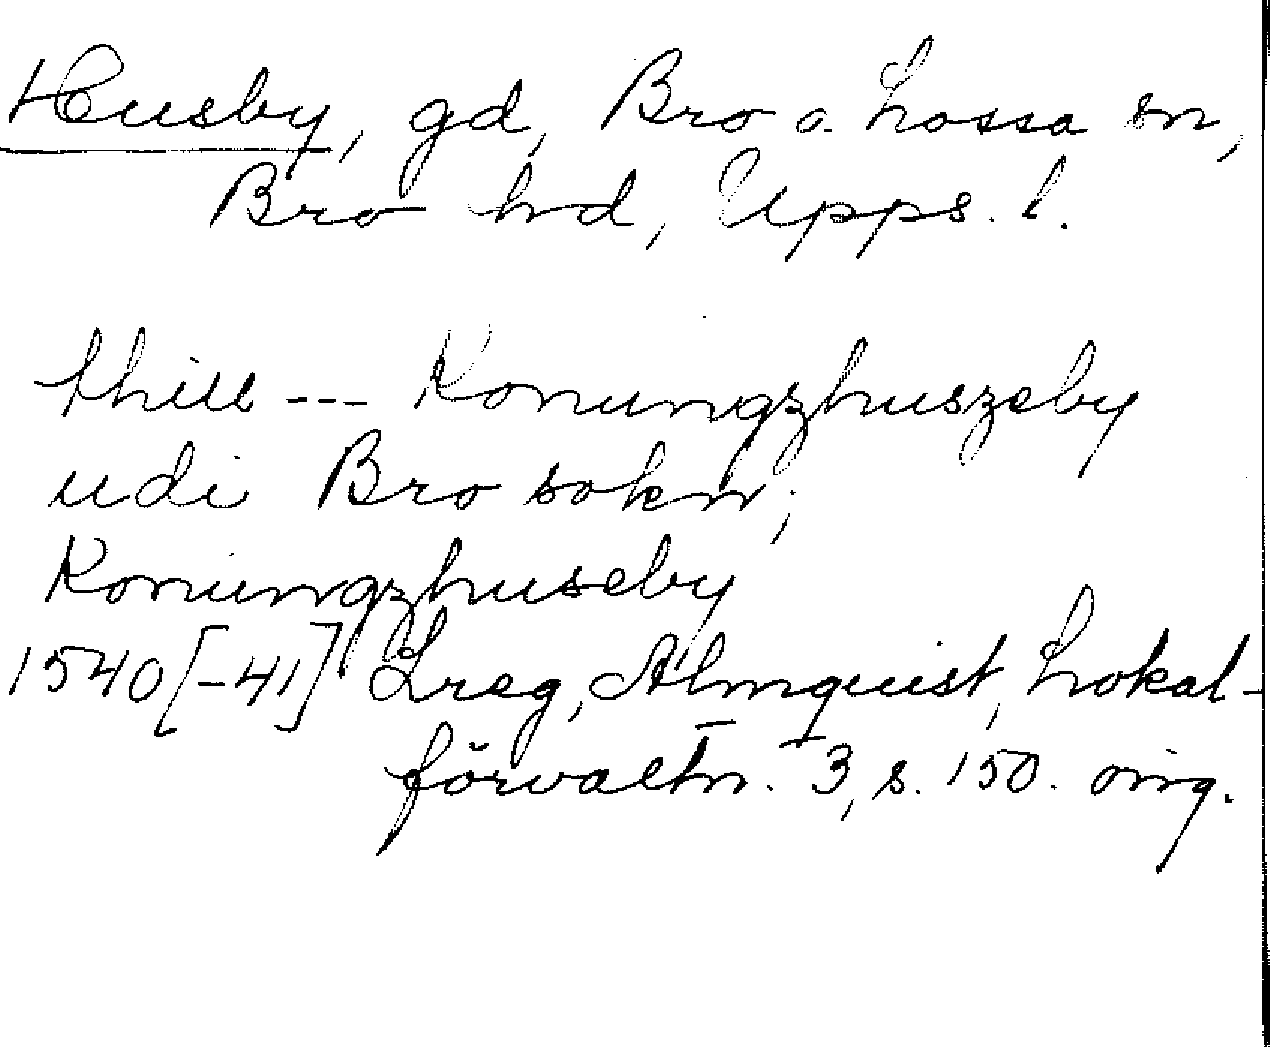 Husby, gd, Bro o. Lossa sn,
Bro hd, Upps. l.
thill --- Konungzhuszeby
udi Bro sokn;
Konungzhuseby
1540[-41] Lreg, Almquist, Lokal-
förvaltn. 3, s. 150. orig.